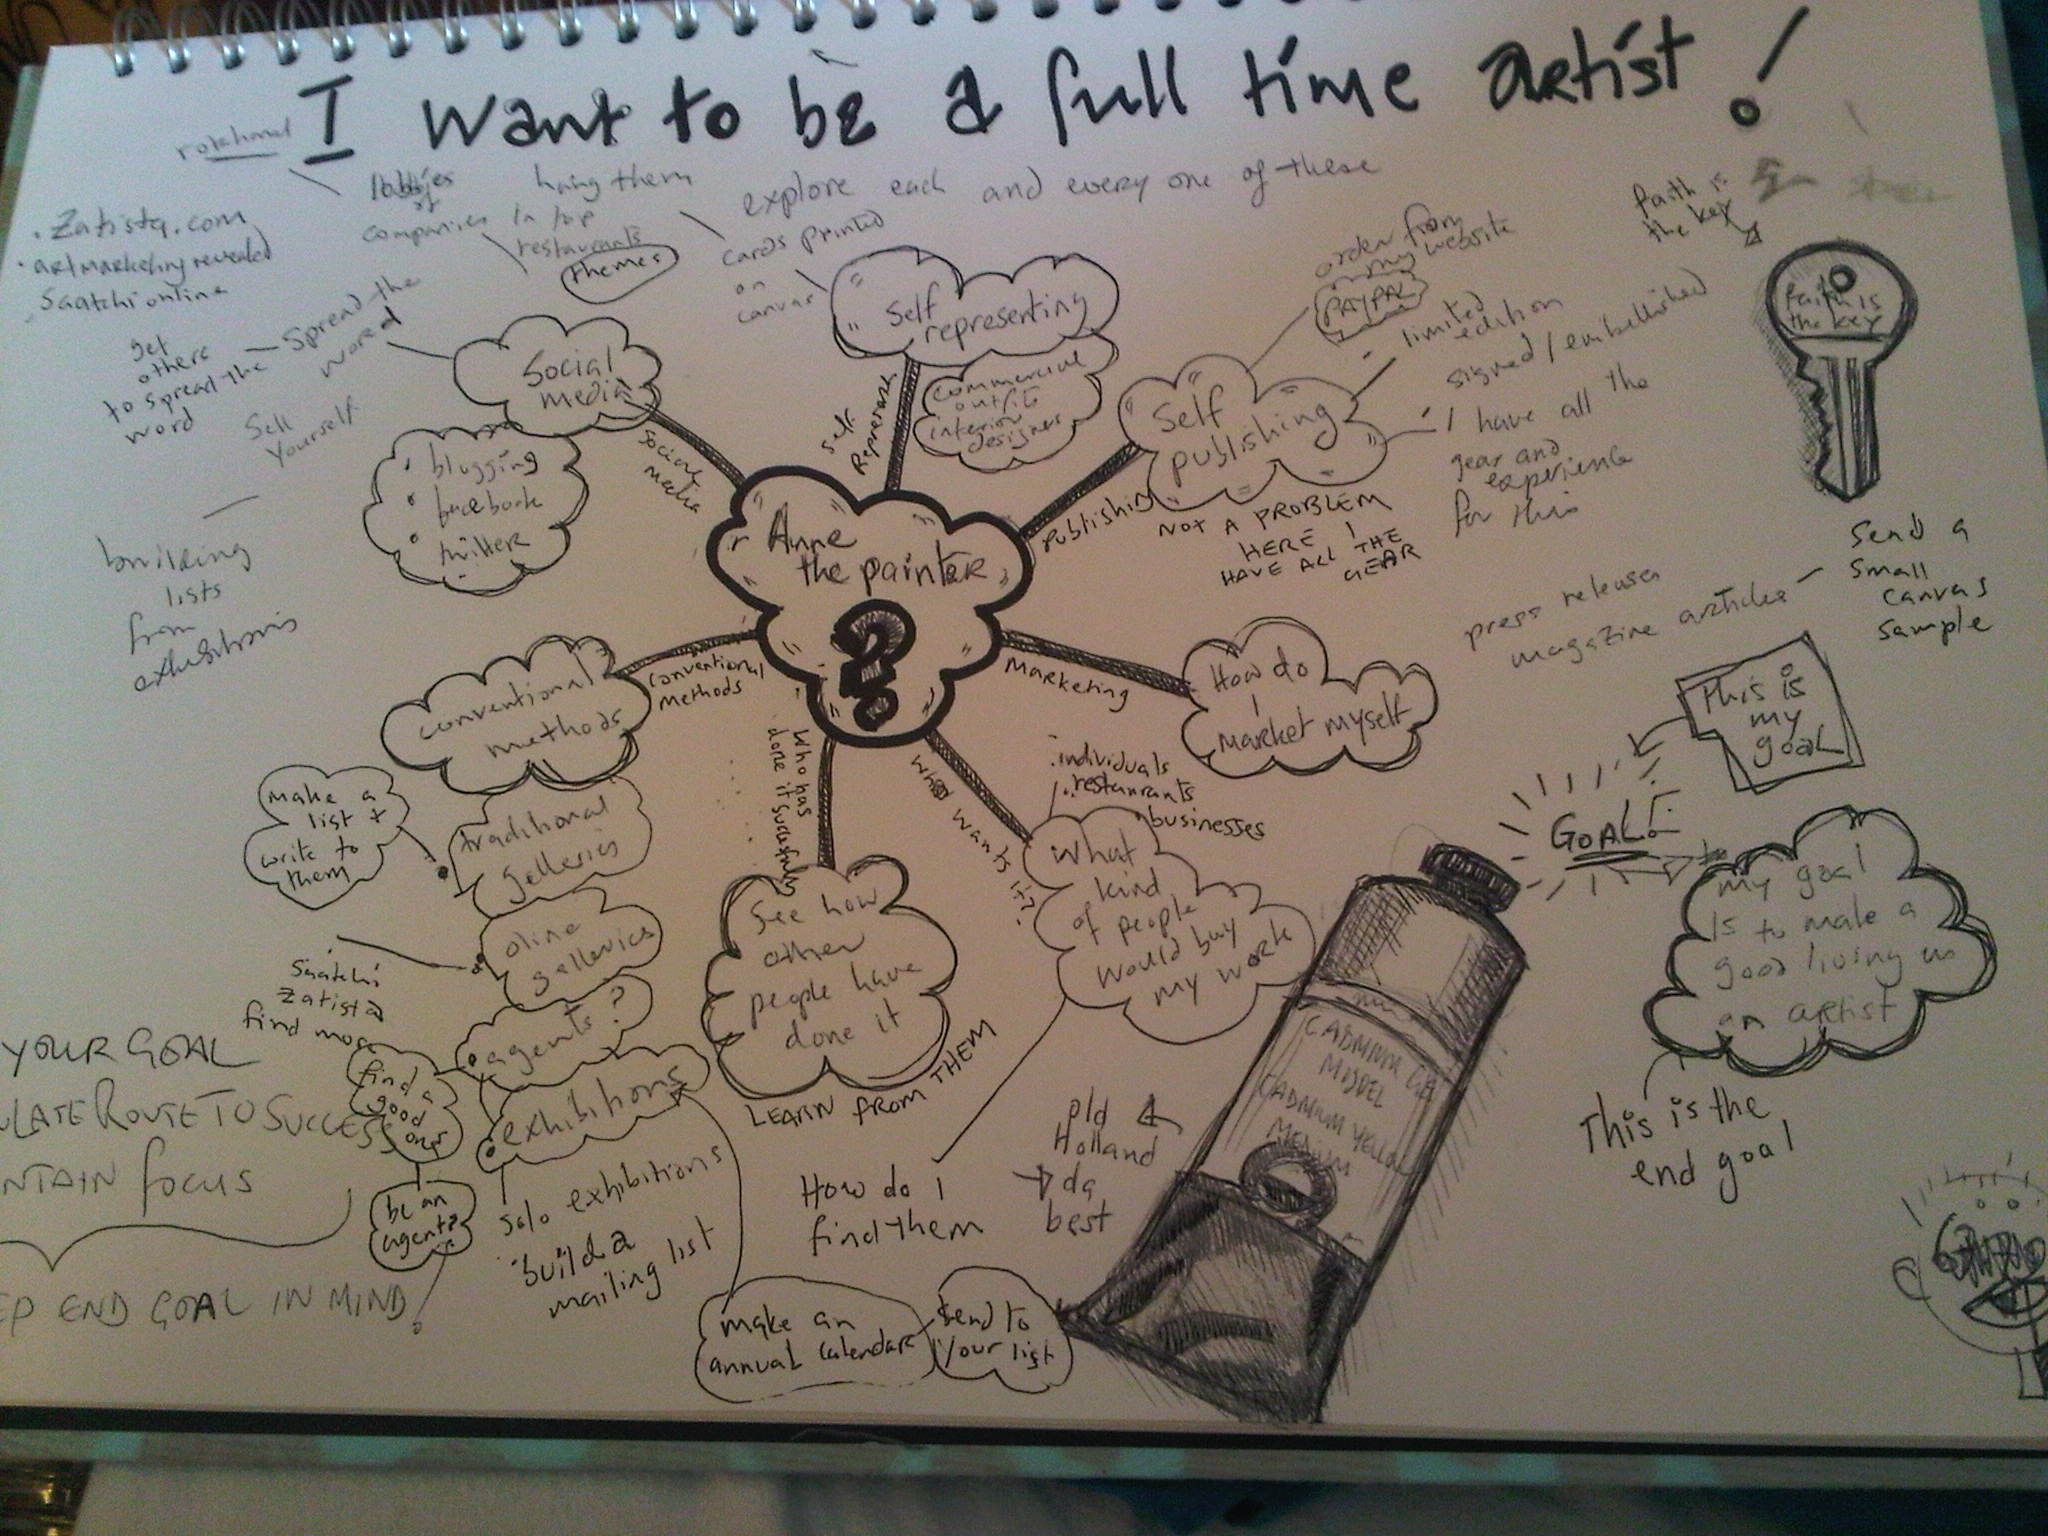 I want to be a full time artist!
rotational
lobbies
of
companies
hang them
in top
restaurants
themes
explore each and every one of these
cards printed
on
canvas
. Zatista.com
. art marketing revealed
. Saatchi online
get
others
to spread the
word
Spread the
word
Sell
yourself
building
lists
from
exhibitions
Social
media
social
media
blogging
facebook
twitter
Self
representing
Self
Represent
commercial
outfits
interior
designers
Self
publishing
publishing
NOT A PROBLEM
HERE I
HAVE ALL THE
GEAR
order from
my website
PAYPAL
limited
edition
signed / embellished
I have all the
gear and
experience
for this
faith is
the key
faith is
the key
Anne
the painter
?
Marketing
How do
I
market myself
press releases
magazine articles
Send a
small
canvas
sample
This is
my
goal
GOAL
my goal
is to make a
good living as
an artist
This is the
end goal
conventional
methods
conventional
methods
traditional
galleries
make a
list +
write to
them
oline
galleries
Saatchi
Zatista
find more
agents?
find a
good
one
be an
agent?
exhibitions
solo exhibitions
build a
mailing list
make an
annual calendar
send to
your list
Who has
done it successfully
See how
other
people have
done it
LEARN FROM THEM
who wants it?
individuals
restaurants
businesses
What
kind
of people
would buy
my work
How do I
find them
old
Holland
da
best
CADMIUM
CADMIUM YELLOW
MEDIUM
YOUR GOAL
ULATE ROUTE TO SUCCESS
NTAIN focus
EP END GOAL IN MIND!